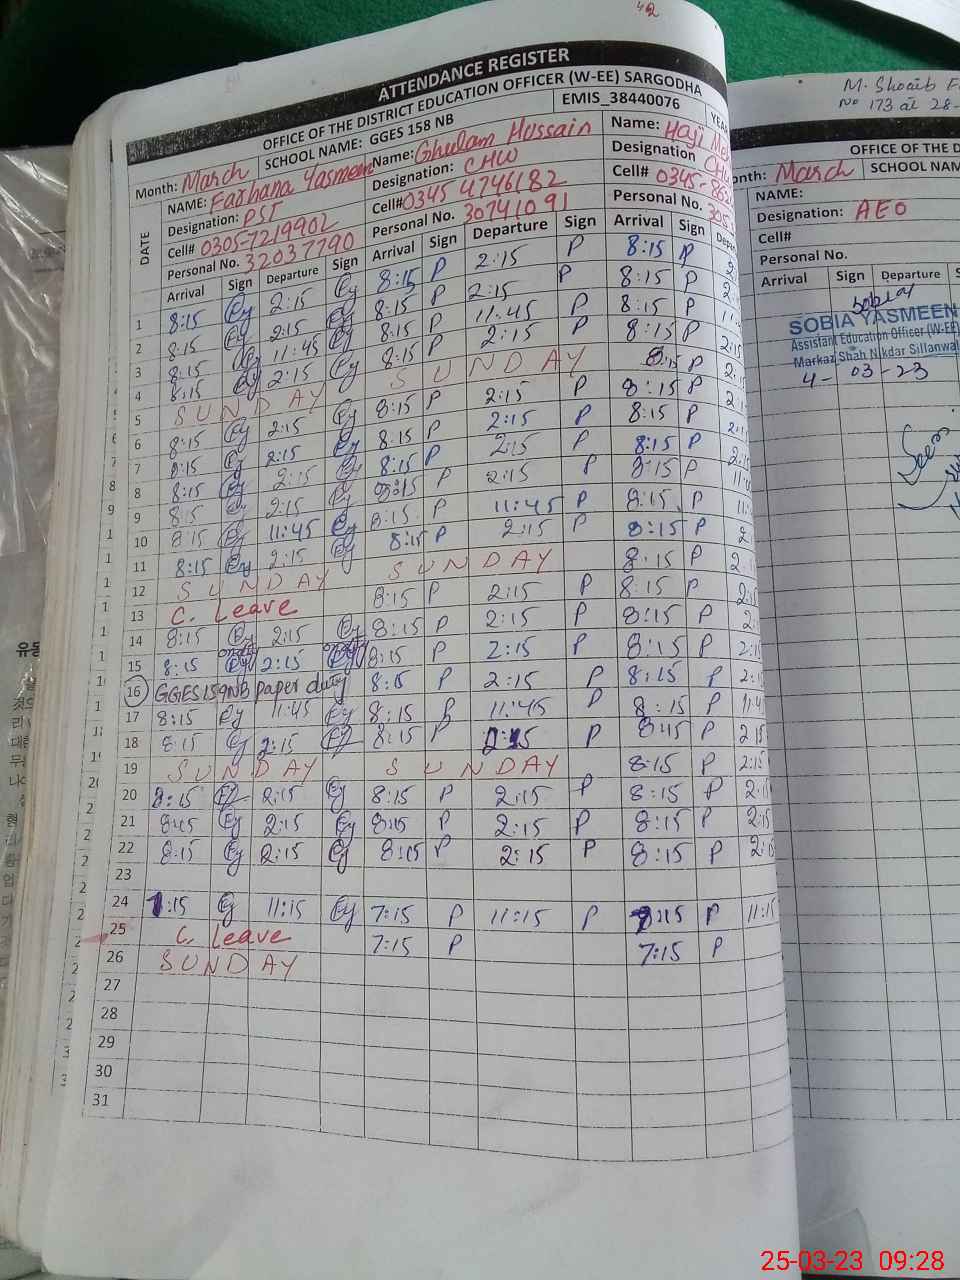 ATTENDANCE REGISTER
OFFICE OF THE DISTRICT EDUCATION OFFICER (W-EE) SARGODHA
Month: March SCHOOL NAME: GGES 158 NB EMIS_38440076 YEA
NAME: Farhana Yasmeen Name: Ghulam Hussain Name: Haji
Designation: PST Designation: CHW Designation
Cell# 0305-7219902 Cell# 0345 4746182 Cell# 0345-
Personal No. 32037790 Personal No. 30741091 Personal No.
DATE Arrival Sign Departure Sign Arrival Sign Departure Sign Arrival Sign
1 8:15 Ey 2:15 Ey 8:15 P 2:15 P 8:15 P
2 8:15 Ey 2:15 Ey 8:15 P 2:15 P 8:15 P
3 8:15 Ey 11:45 Ey 8:15 P 11:45 P 8:15 P
4 8:15 Ey 2:15 Ey 8:15 P 2:15 P 8:15 P
5 SUNDAY SUNDAY 8:15 P
6 8:15 Ey 2:15 Ey 8:15 P 2:15 P 8:15 P
7 8:15 Ey 2:15 Ey 8:15 P 2:15 P 8:15 P
8 8:15 Ey 2:15 Ey 8:15 P 2:15 P 8:15 P
9 8:15 Ey 2:15 Ey 8:15 P 2:15 P 8:15 P
10 8:15 Ey 11:45 Ey 8:15 P 11:45 P 8:15 P
11 8:15 Ey 2:15 Ey 8:15 P 2:15 P 8:15 P
12 SUNDAY SUNDAY 8:15 P
13 C. Leave 8:15 P 2:15 P 8:15 P
14 8:15 Ey 2:15 Ey 8:15 P 2:15 P 8:15 P
15 8:15 Ey 2:15 Ey 8:15 P 2:15 P 8:15 P
16 GGES 159NB paper duty 8:15 P 2:15 P 8:15 P
17 8:15 Ey 11:45 Ey 8:15 P 11:45 P 8:15 P
18 8:15 Ey 2:15 Ey 8:15 P 2:15 P 8:15 P 2:15
19 SUNDAY SUNDAY 8:15 P 2:15
20 8:15 Ey 2:15 Ey 8:15 P 2:15 P 8:15 P 2:15
21 8:15 Ey 2:15 Ey 8:15 P 2:15 P 8:15 P 2:15
22 8:15 Ey 2:15 Ey 8:15 P 2:15 P 8:15 P 2:15
23
24 7:15 Ey 11:15 Ey 7:15 P 11:15 P 7:15 P 11:15
25 C. Leave 7:15 P 7:15 P
26 SUNDAY
27
28
29
30
31
M. Shoaib
No 173 at 28-
OFFICE OF THE D
onth: March SCHOOL NAM
NAME:
Designation: AEO
Cell#
Personal No.
Arrival Sign Departure
SOBIA YASMEEN
Assistant Education Officer (W-EE)
Markaz Shah Nikdar Sillanwal
4-03-23
Seen
25-03-23 09:28